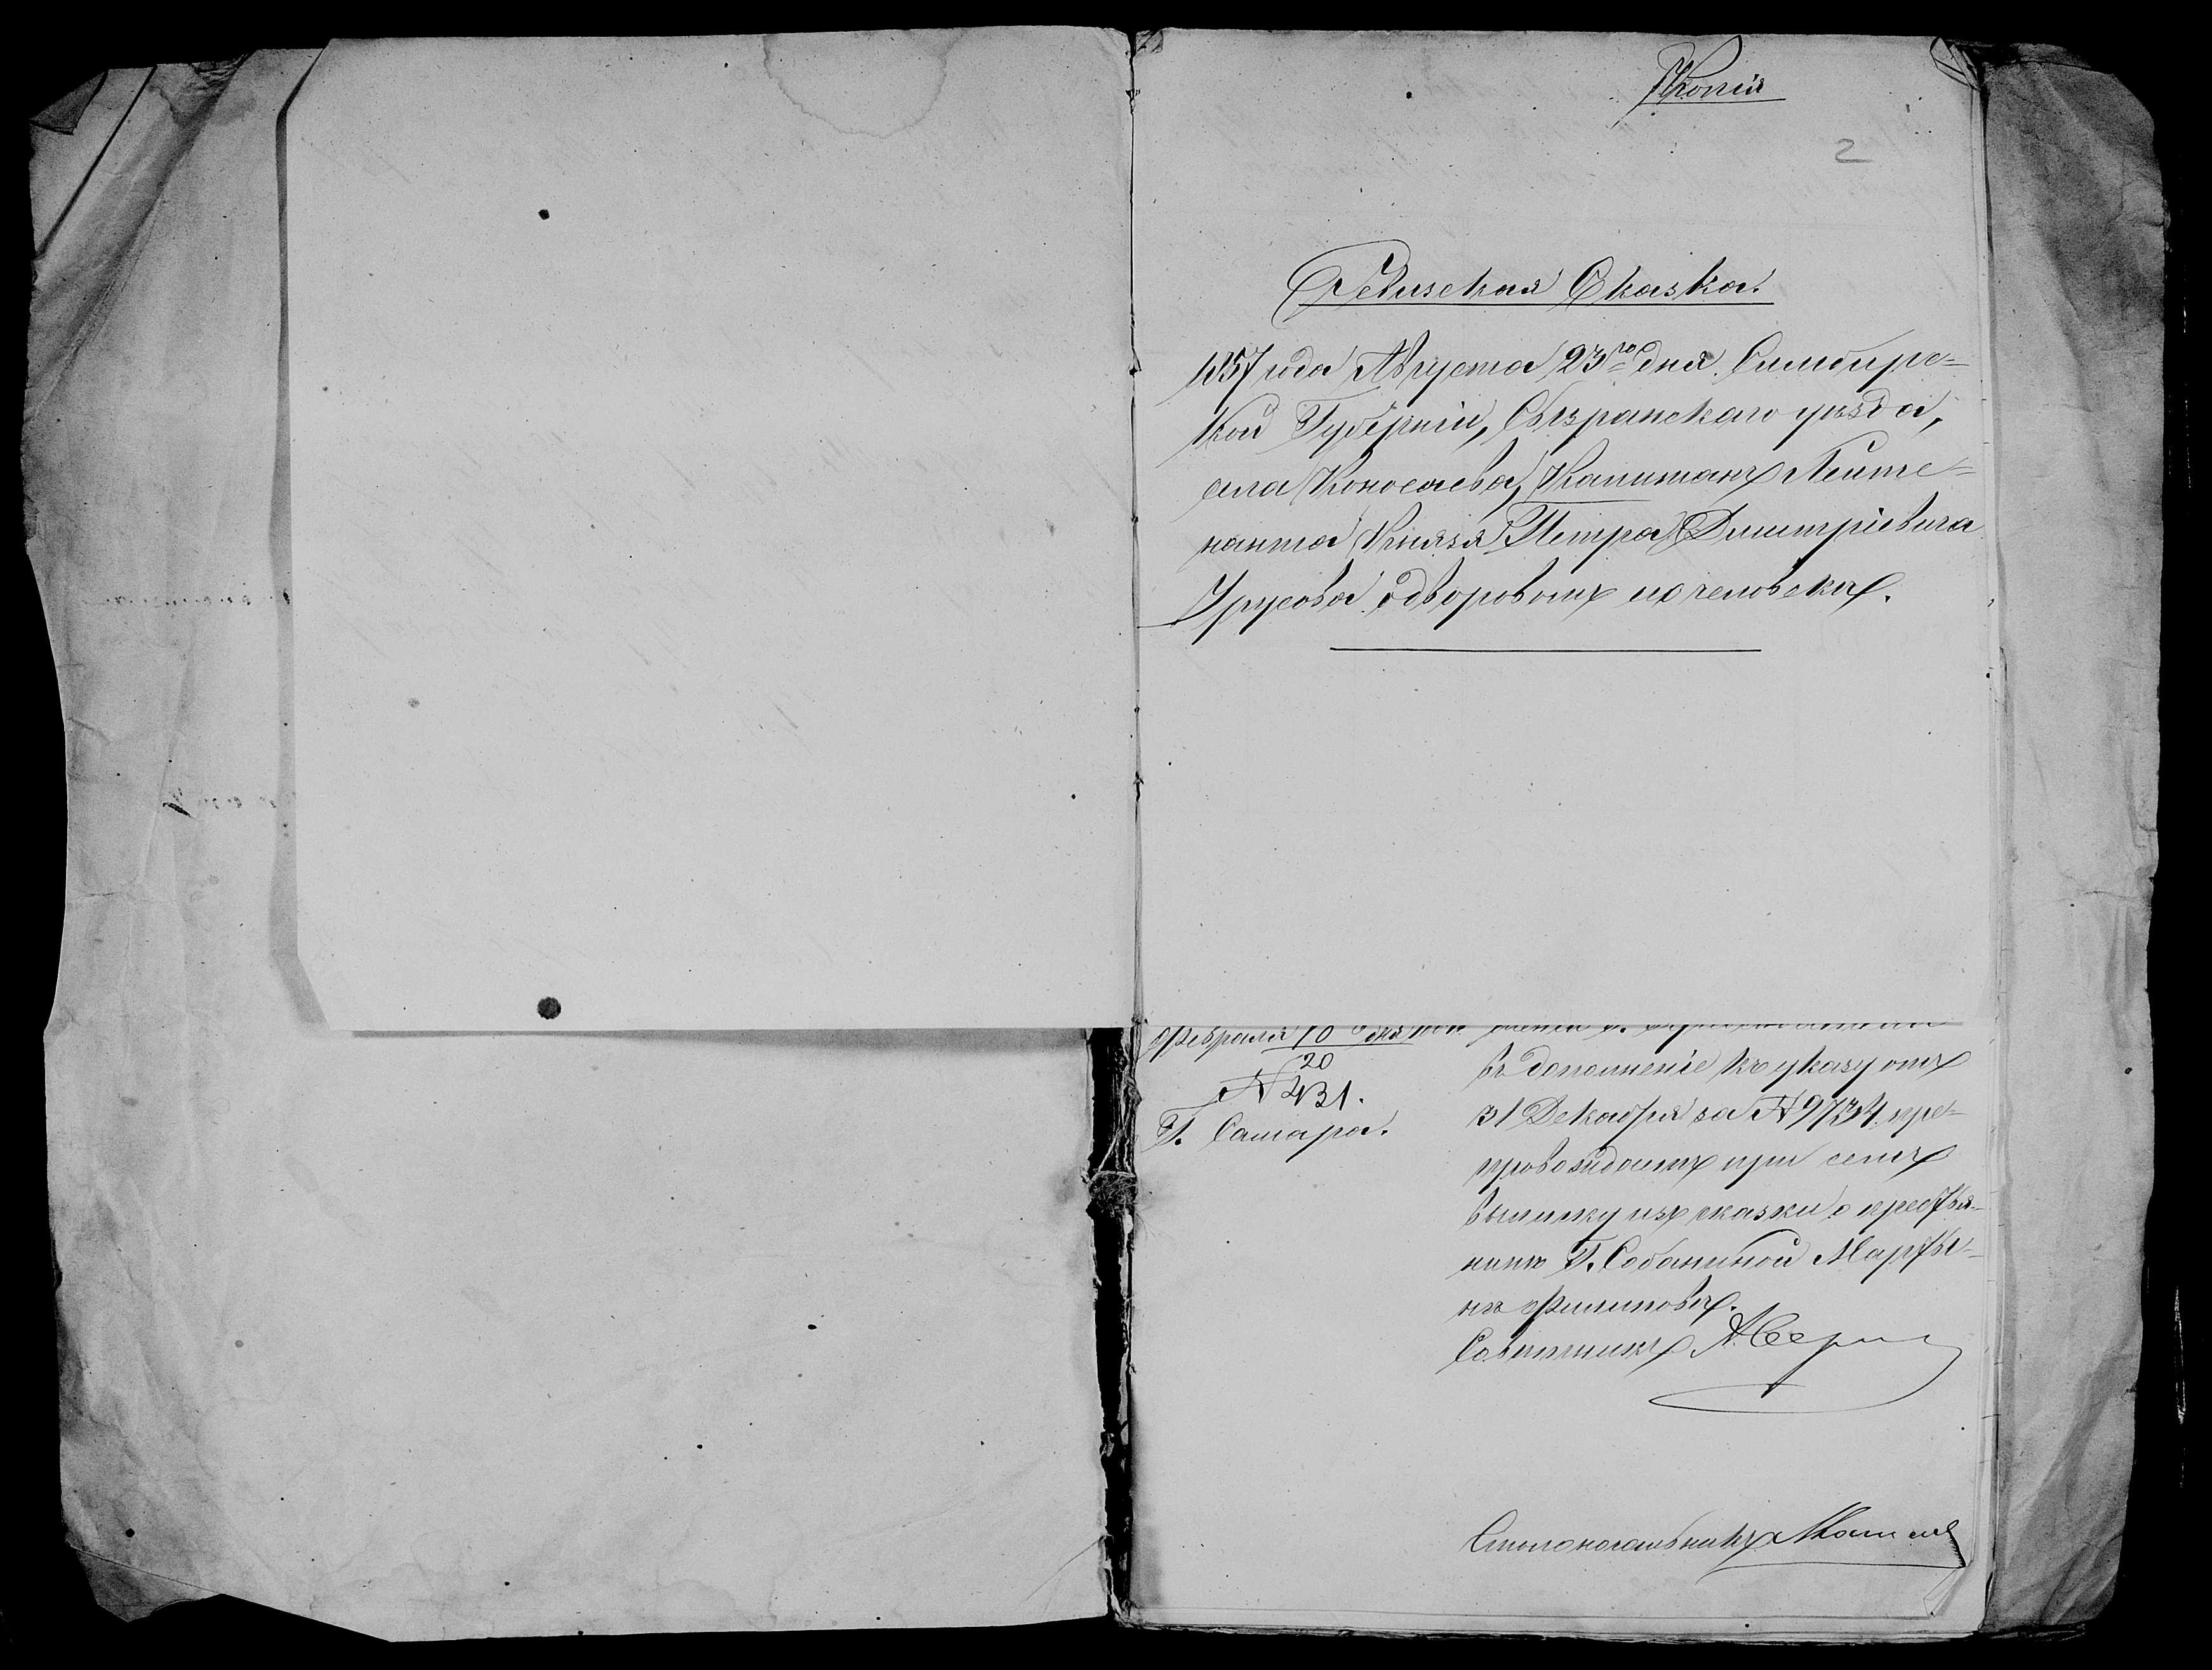 Копія
2
Ревизская Сказка.
1857 года Августа 23го дня Симбирс-
кой Губерніи, Сызранскаго уѣзда,
села Коносаева, Капитанъ Лейте-
нанта Князя Петра Дмитріевича
Урусова, о дворовомъ его человекѣ.
Февраля 10 дня
20
№ 431.
Г. Самара.
въ дополненіе къ указу отъ
31 Декабря за № 9734, пре-
провождаетъ при семъ
выписку изъ сказки о крестья-
нинѣ Г. Собакиной Марты-
нѣ Филиповѣ.
Совѣтникъ
Столоначальникъ